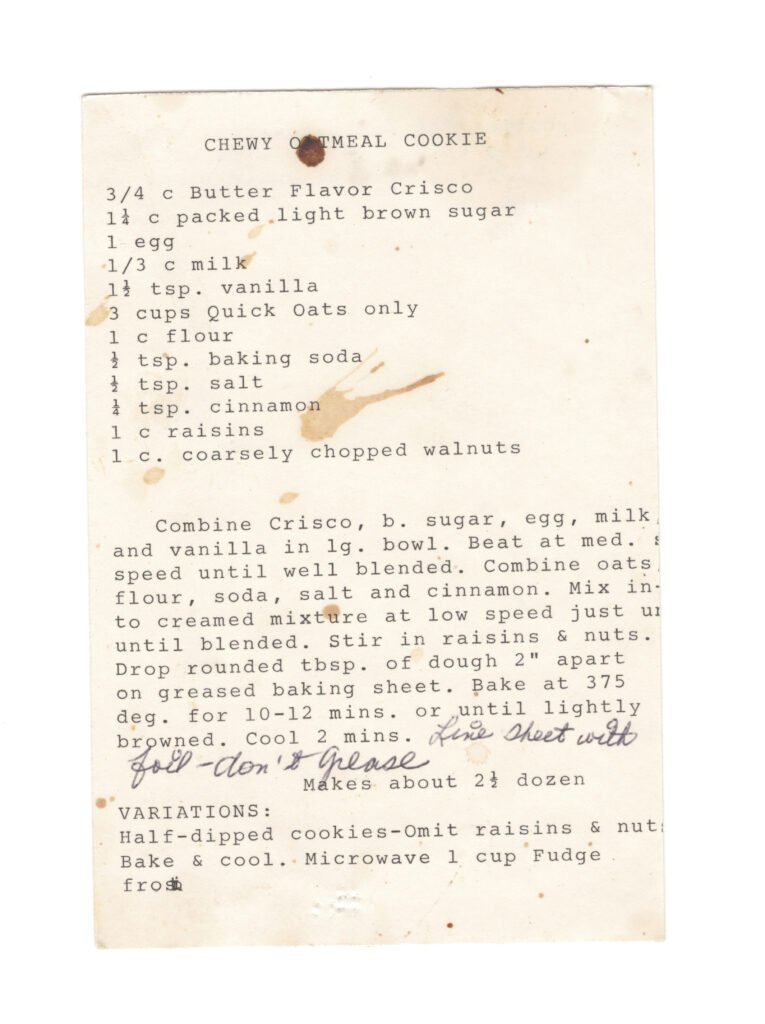 CHEWY OATMEAL COOKIE
3/4 c Butter Flavor Crisco
1¼ c packed light brown sugar
1 egg
1/3 c milk
1½ tsp. vanilla
3 cups Quick Oats only
1 c flour
½ tsp. baking soda
½ tsp. salt
¼ tsp. cinnamon
1 c raisins
1 c. coarsely chopped walnuts
Combine Crisco, b. sugar, egg, milk,
and vanilla in lg. bowl. Beat at med. s
speed until well blended. Combine oats,
flour, soda, salt and cinnamon. Mix in-
to creamed mixture at low speed just un
until blended. Stir in raisins & nuts.
Drop rounded tbsp. of dough 2" apart
on greased baking sheet. Bake at 375
deg. for 10-12 mins. or until lightly
browned. Cool 2 mins. Line sheet with
foil - don't grease
Makes about 2½ dozen
VARIATIONS:
Half-dipped cookies-Omit raisins & nuts
Bake & cool. Microwave 1 cup Fudge